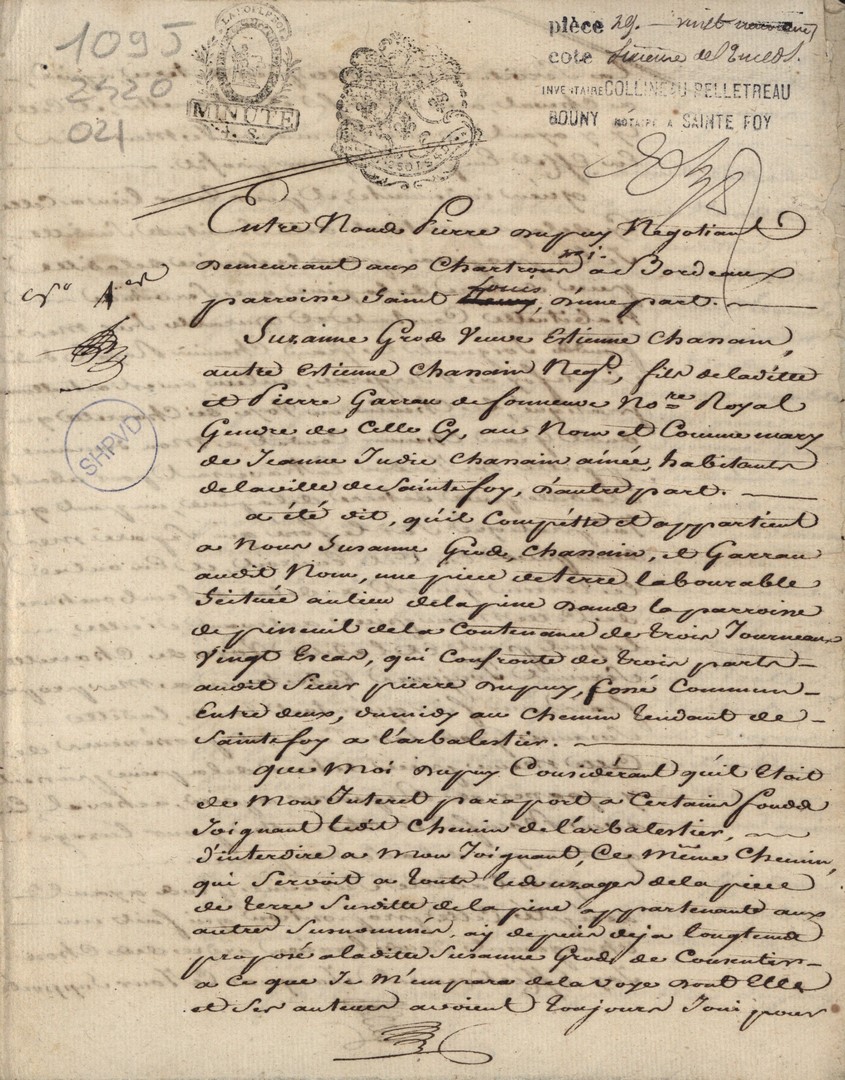 1095
2420
021
LA LOI LE ROI
MINUTE
4. S.
pièce 29. — vingt neuf
cote
INVENTAIRE COLLINEAU-PELLETREAU
BOUNY NOTAIRE A SAINTE FOY
Entre Nous Pierre Dupuy Negotiant
Demeurant aux Chartrons a Bordeaux
parroisse Saint Louis, d'une part. —
No 1er
Suzanne Grods Veuve Estienne Chassain,
autre Estienne Chassain Negt., fils de laditte
et Pierre Garrau de fonneuve Nore Royal
Gendre de Celle Cy, au Nom et Comme mary
de Jeanne Judic Chassain ainée, habitants
de la ville de Sainte foy, d'autre part. —
SHPVD
a été dit, qu'il Compétte et appartient
a Nous Suzanne Grods, Chassain, et Garrau
audit Nom, une piece de terre labourable
Scituée au lieu de la pine dans la parroisse
de pineuil de la Contenance de trois Journeaux
Vingt Escas, qui Confronte de trois parts —
audit Sieur pierre Dupuy, fossé Commun —
Entre deux, du midy au Chemin tendant de —
Sainte foy a l'arbalestier. —
que Moi Dupuy Considérant qu'il Etoit
de Mon Interet par aport a Certains fonds
Joignant ledit Chemin de l'arbalestier, —
d'interdire a Mon Joignant, Ce même Chemin,
qui Servoit a touts les uzages de la piece
de terre Susditte de la pine appartenante aux
autres Susnommés, ay depuis deja longtems
proposé a laditte Suzanne Grods de Consentir —
a Ce que Je M'empara de la Voye dont Elle
et Ses auteurs avoient toujours Joui pour